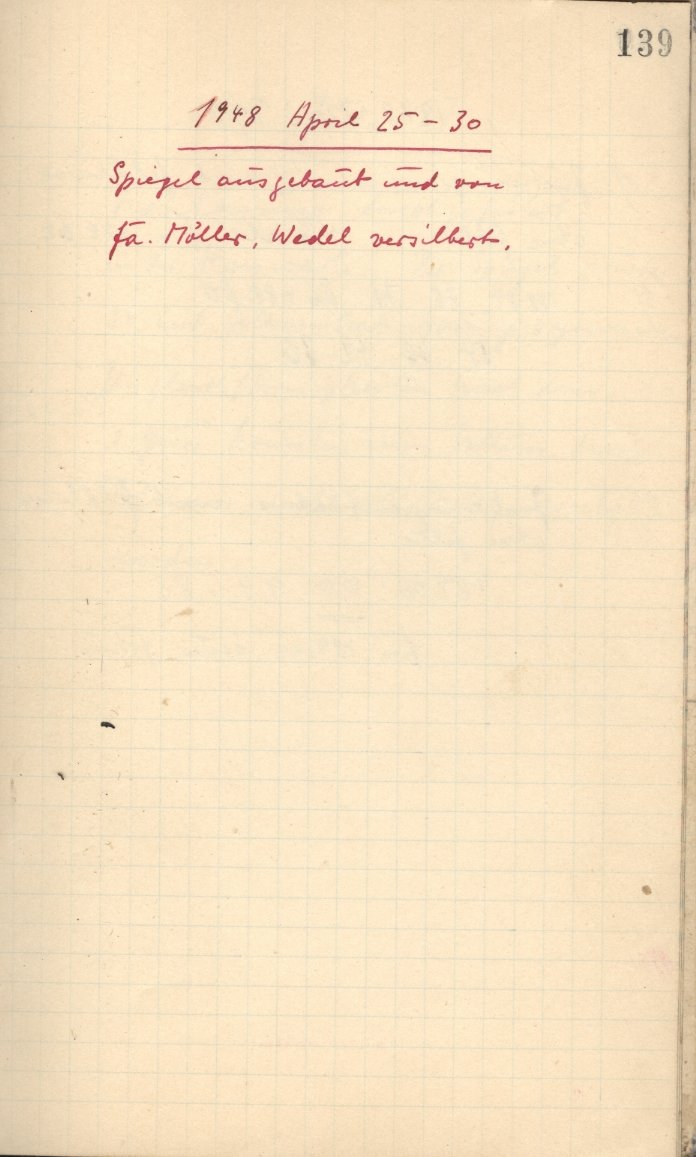 139
1948 April 25 – 30
Spiegel ausgebaut und von
Fa. Möller, Wedel versilbert.